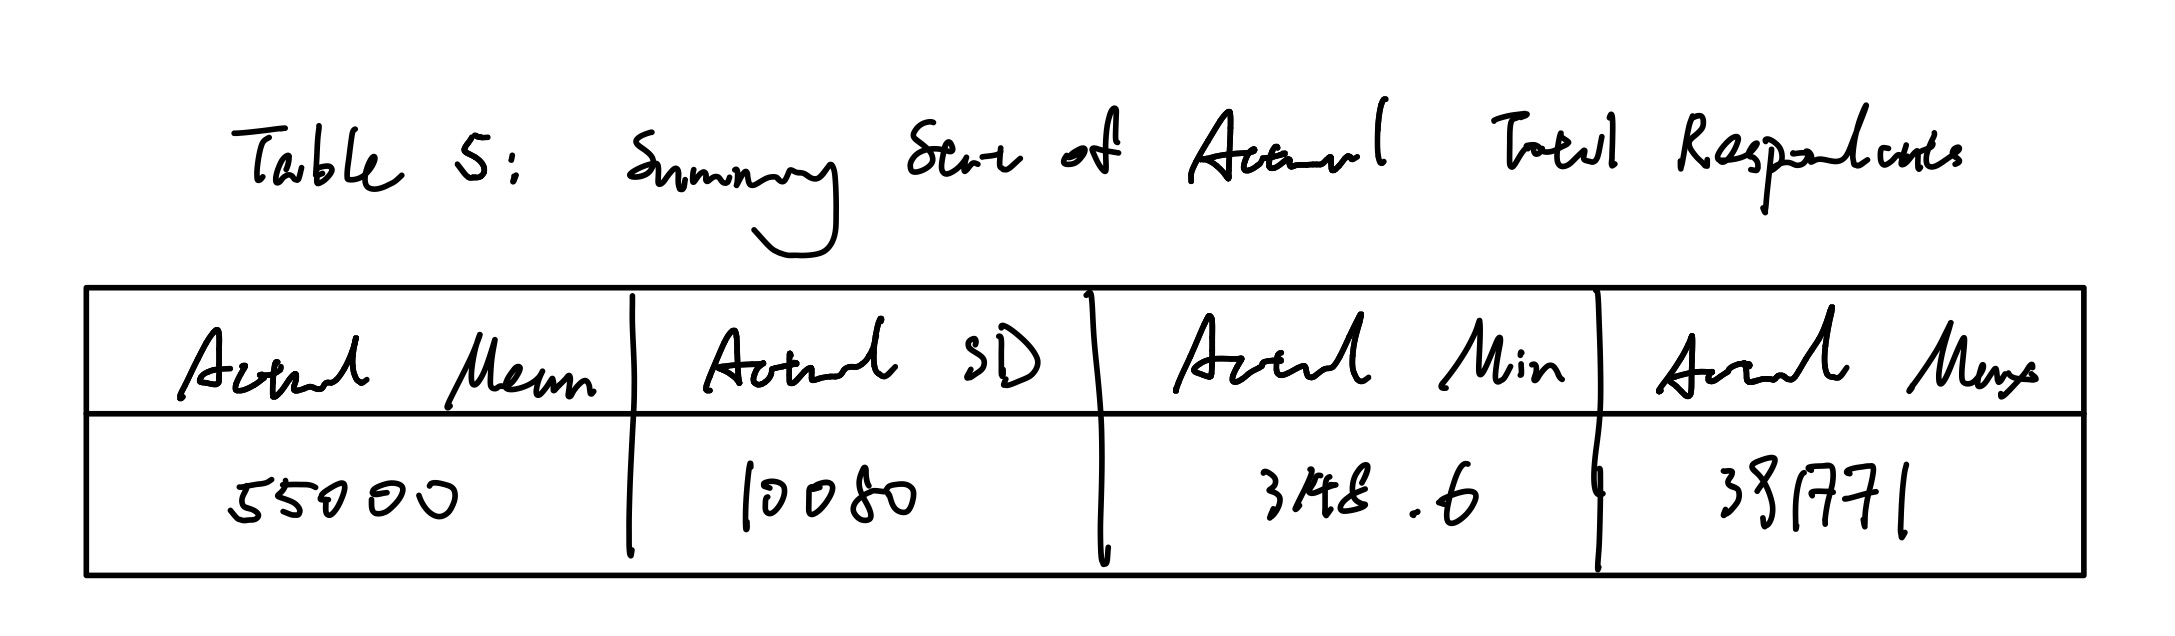 Table 5: Summary Stat of Actual Total Respondents
Actual Mean Actual SD Actual Min Actual Max
55000 10080 348.6 391771